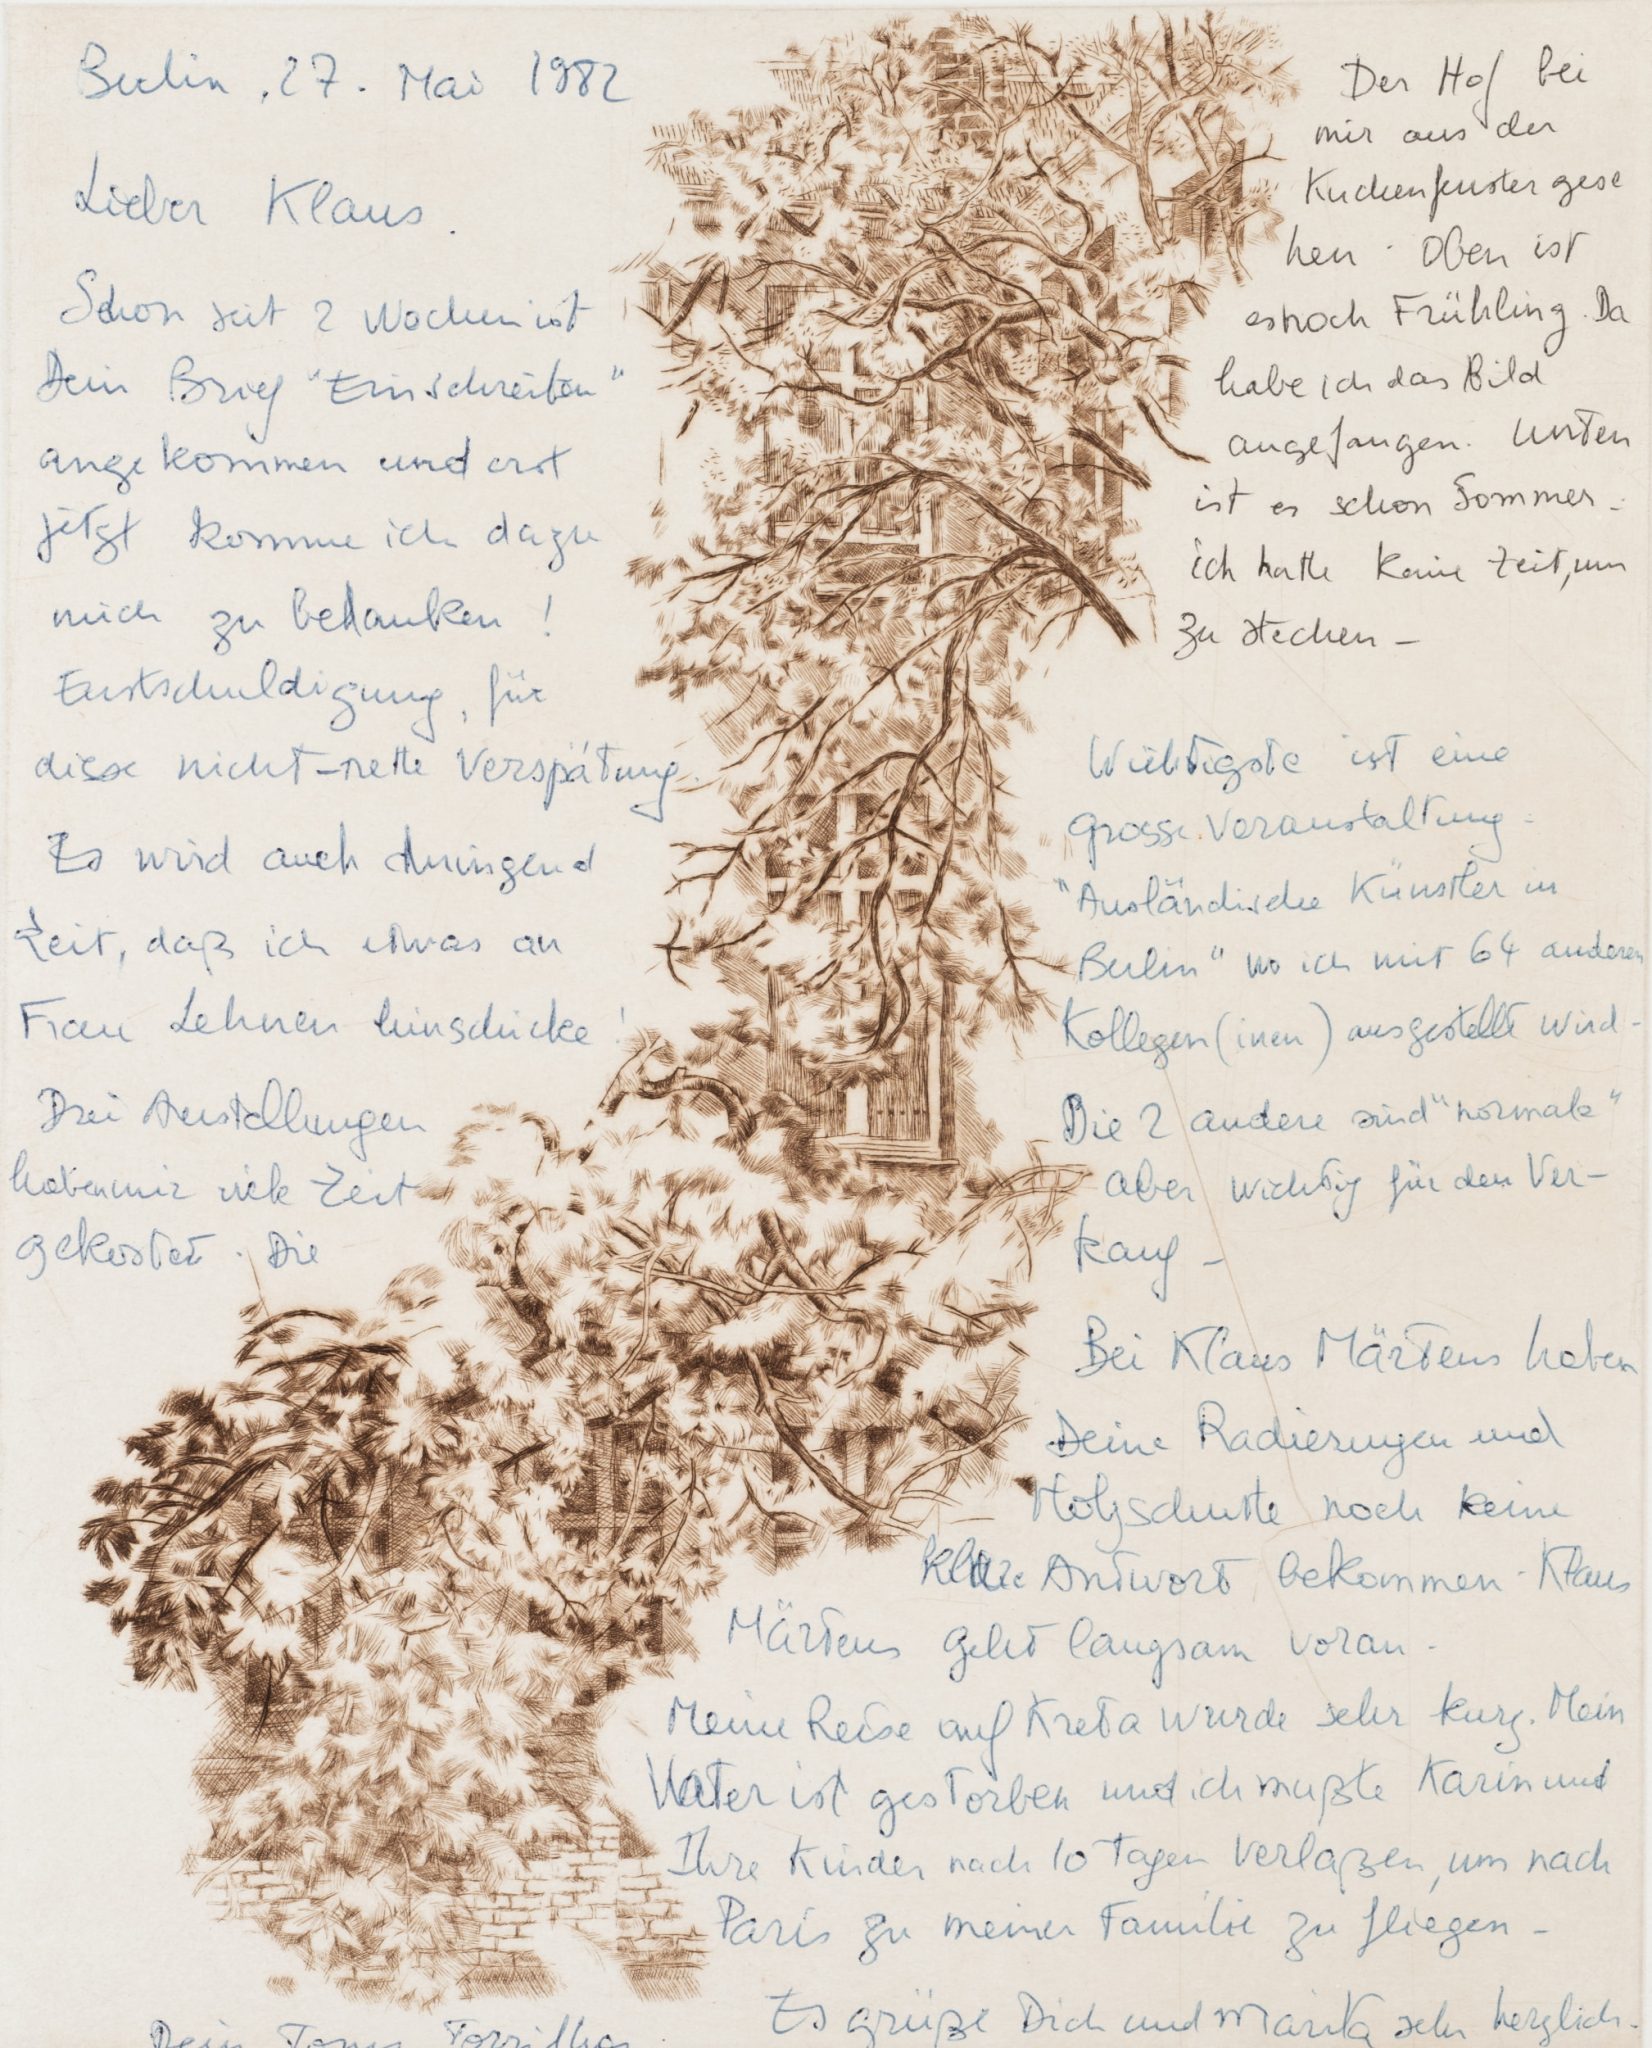 Berlin, 27. Mai 1982
Lieber Klaus.
Schon seit 2 Wochen ist
Dein Brief "Einschreiben"
angekommen und erst
jetzt komme ich dazu
mich zu bedanken!
Entschuldigung, für
diese nicht-nette Verspätung.
Es wird auch dringend
Zeit, daß ich etwas an
Frau Lehnen hinschicke!
Drei Austellungen
haben mir viele Zeit
gekostet. Die
Wichtigste ist eine
grosse Veranstaltung.
"Ausländische Künstler in
Berlin" wo ich mit 64 anderen
Kollegen(inen) ausgestellt wird-
Die 2 andere sind "normale"
aber wichtig für den Ver-
kauf -
Bei Klaus Märtens haben
Deine Radierungen und
Holzschnitte noch keine
klare Antwort bekommen. Klaus
Märtens geht langsam voran.
Meine Reise auf Kreta wurde sehr kurz. Mein
Vater ist gestorben und ich mußte Karin und
Ihre Kinder nach 10 Tagen verlaßen, um nach
Paris zu meiner Familie zu fliegen -
Es grüße Dich und Marita sehr herzlich.
Dein
Der Hof bei
mir aus der
Kuchenfenster gese
hen. Oben ist
es noch Frühling. Da
habe ich das Bild
angefangen. Unten
ist es schon Sommer.
ich hatte keine Zeit, um
zu stechen -